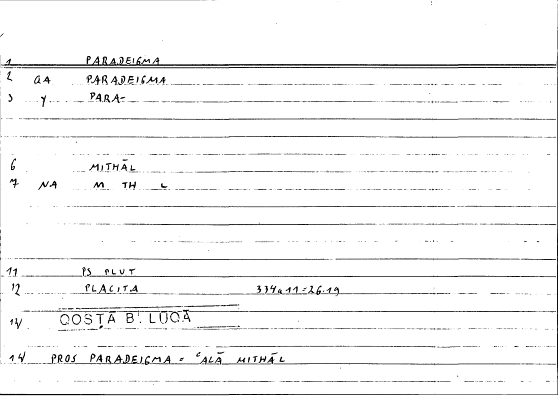 1 PARADEIGMA
2 GA PARADEIGMA
3 Y PARA-
6 MITHĀL
7 NA M TH L
11 PS PLUT
12 PLACITA 334a11=26.19
14 QOSṬĀ B. LŪQĀ
14 PROS PARADEIGMA = ʿALĀ MITHĀL